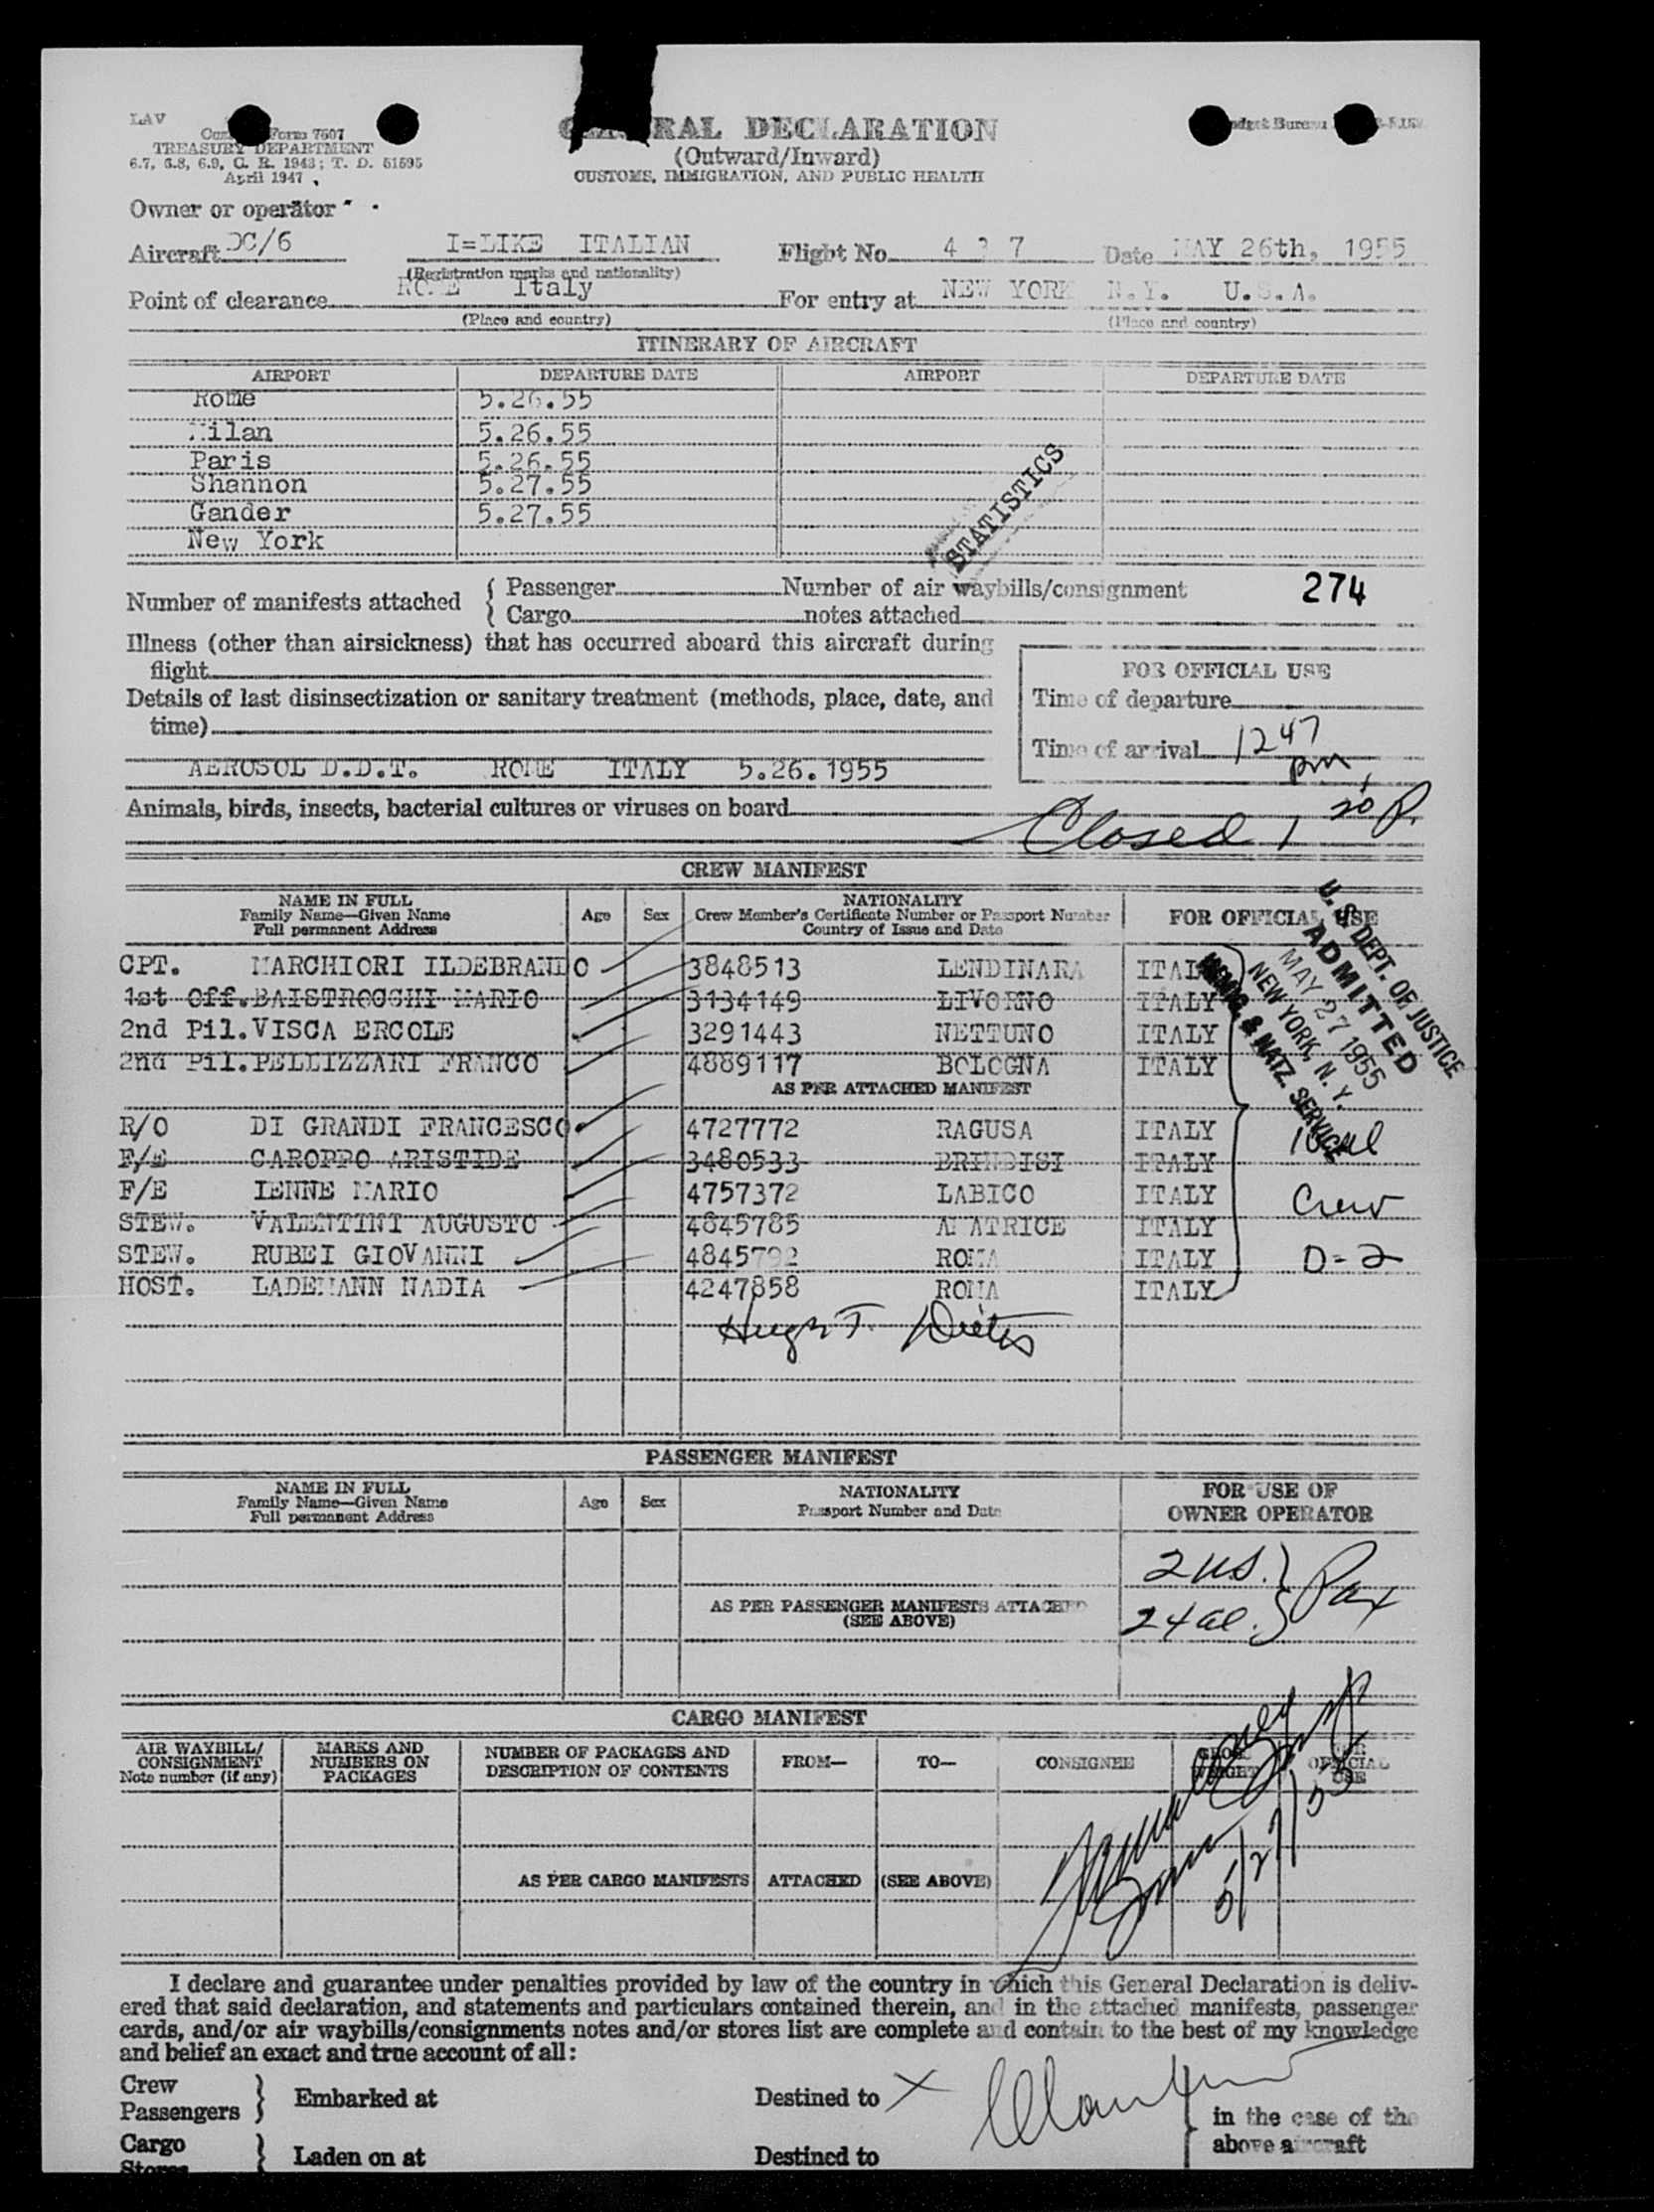 LAV
Form 7507
TREASURY DEPARTMENT
6.7, 6.8, 6.9, C. R. 1943; T. D. 51595
April 1947
GENERAL DECLARATION
(Outward/Inward)
CUSTOMS, IMMIGRATION, AND PUBLIC HEALTH
Budget Bureau
Owner or operator
Aircraft DC/6 I=LIKE ITALIAN Flight No. 4 7 Date MAY 26th, 1955
(Registration marks and nationality)
Point of clearance ROME Italy For entry at NEW YORK N.Y. U.S.A.
(Place and country) (Place and country)
ITINERARY OF AIRCRAFT
AIRPORT DEPARTURE DATE AIRPORT DEPARTURE DATE
Rome 5.26.55
Milan 5.26.55
Paris 5.26.55
Shannon 5.27.55
Gander 5.27.55
New York
STATISTICS
Number of manifests attached { Passenger Number of air waybills/consignment 274
Cargo notes attached
Illness (other than airsickness) that has occurred aboard this aircraft during
flight
Details of last disinsectization or sanitary treatment (methods, place, date, and
time)
AEROSOL D.D.T. ROME ITALY 5.26.1955
FOR OFFICIAL USE
Time of departure
Time of arrival 1247
pm
Animals, birds, insects, bacterial cultures or viruses on board
Closed 1 20 P.
CREW MANIFEST
NAME IN FULL
Family Name—Given Name
Full permanent Address
Age Sex
NATIONALITY
Crew Member's Certificate Number or Passport Number
Country of Issue and Date
FOR OFFICIAL USE
CPT. MARCHIORI ILDEBRANDO 3848513 LENDINARA ITALY
1st Off. BAISTROCCHI MARIO 3134149 LIVORNO ITALY
2nd Pil. VISCA ERCOLE 3291443 NETTUNO ITALY
2nd Pil. PELLIZZARI FRANCO 4889117 BOLOGNA ITALY
AS PER ATTACHED MANIFEST
R/O DI GRANDI FRANCESCO 4727772 RAGUSA ITALY
F/E CAROPPO ARISTIDE 3480533 BRINDISI ITALY
F/E IENNE MARIO 4757372 LABICO ITALY
STEW. VALENTINI AUGUSTO 4845785 AMATRICE ITALY
STEW. RUBEI GIOVANNI 4845792 ROMA ITALY
HOST. LADEMANN NADIA 4247858 ROMA ITALY
U. S. DEPT. OF JUSTICE
ADMITTED
MAY 27 1955
NEW YORK, N. Y.
IMMIG. & NATZ. SERVICE
10 al
Crew
D-2
Hugh T.
PASSENGER MANIFEST
NAME IN FULL
Family Name—Given Name
Full permanent Address
Age Sex
NATIONALITY
Passport Number and Date
FOR USE OF
OWNER OPERATOR
2 US. } Pax
24 al.
AS PER PASSENGER MANIFESTS ATTACHED
(SEE ABOVE)
CARGO MANIFEST
AIR WAYBILL/
CONSIGNMENT
Note number (if any)
MARKS AND
NUMBERS ON
PACKAGES
NUMBER OF PACKAGES AND
DESCRIPTION OF CONTENTS
FROM— TO— CONSIGNEE
GROSS
WEIGHT
FOR
OFFICIAL
USE
AS PER CARGO MANIFESTS ATTACHED (SEE ABOVE)
5/27/55
I declare and guarantee under penalties provided by law of the country in which this General Declaration is deliv-
ered that said declaration, and statements and particulars contained therein, and in the attached manifests, passenger
cards, and/or air waybills/consignments notes and/or stores list are complete and contain to the best of my knowledge
and belief an exact and true account of all:
Crew
Passengers } Embarked at Destined to X
in the case of the
above aircraft
Cargo
Stores } Laden on at Destined to